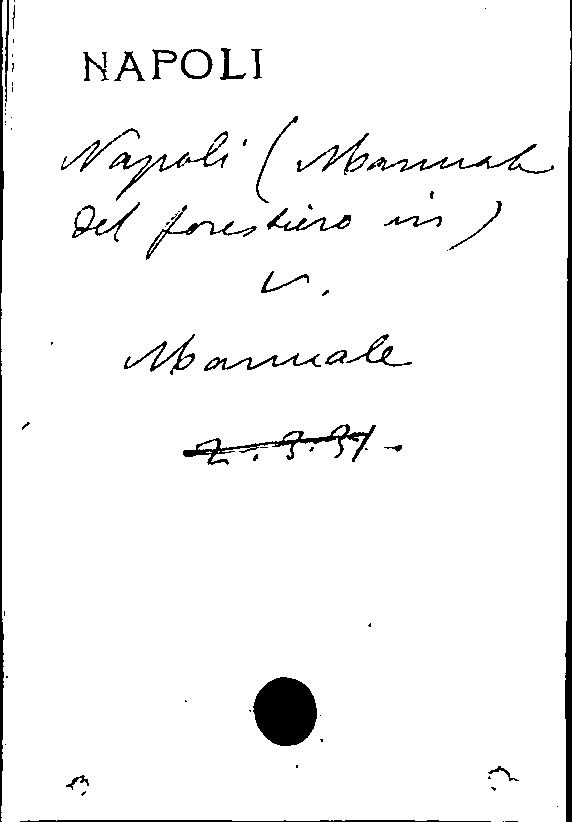 NAPOLI
Napoli (Manuale
del forestiero in)
V.
Manuale
2.3.31.